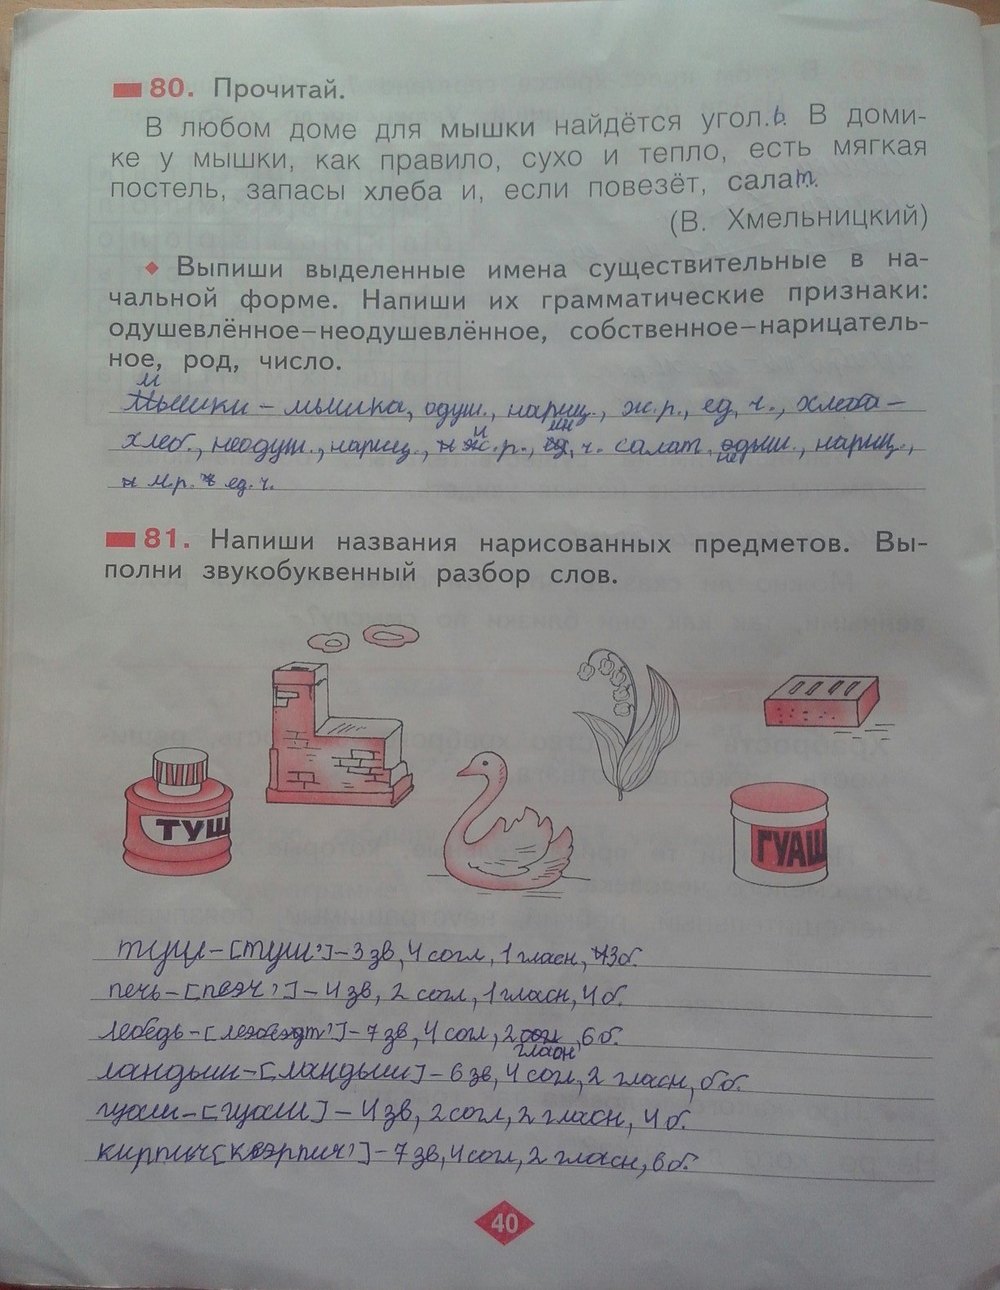 80. Прочитай.
В любом доме для мышки найдётся угол.ь. В доми-
ке у мышки, как правило, сухо и тепло, есть мягкая
постель, запасы хлеба и, если повезёт, салат.
(В. Хмельницкий)
Выпиши выделенные имена существительные в на-
чальной форме. Напиши их грамматические признаки:
одушевлённое–неодушевлённое, собственное–нарицатель-
ное, род, число.
Мышки – мышка, одуш., нариц., ж.р., ед. ч., хлеба –
хлеб., неодуш., нариц., р., ч. салат, нариц.,
м.р. ед. ч.
81. Напиши названия нарисованных предметов. Вы-
полни звукобуквенный разбор слов.
ТУШ
ГУАШ
туш – [туш’] – 3 зв, 4 согл, 1 гласн, 3б.
печь – [пэч’] – 4 зв, 2 согл, 1 гласн, 4 б.
лебедь – 7 зв, 4 согл, 2 гласн, 6 б.
ландыш – [ландыш] – 6 зв, 4 согл, 2 гласн, 6 б.
гуаш – [гуаш] – 4 зв, 2 согл, 2 гласн, 4 б.
кирпич – 7 зв, 4 согл, 2 гласн, 6 б.
40